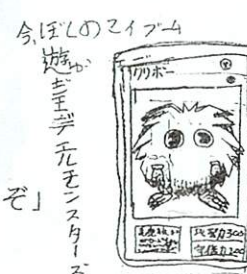 今、ぼしのマイブーム
遊が王デュエルモンスターズ
ぞ」
クリボー
攻撃力300
守備力200